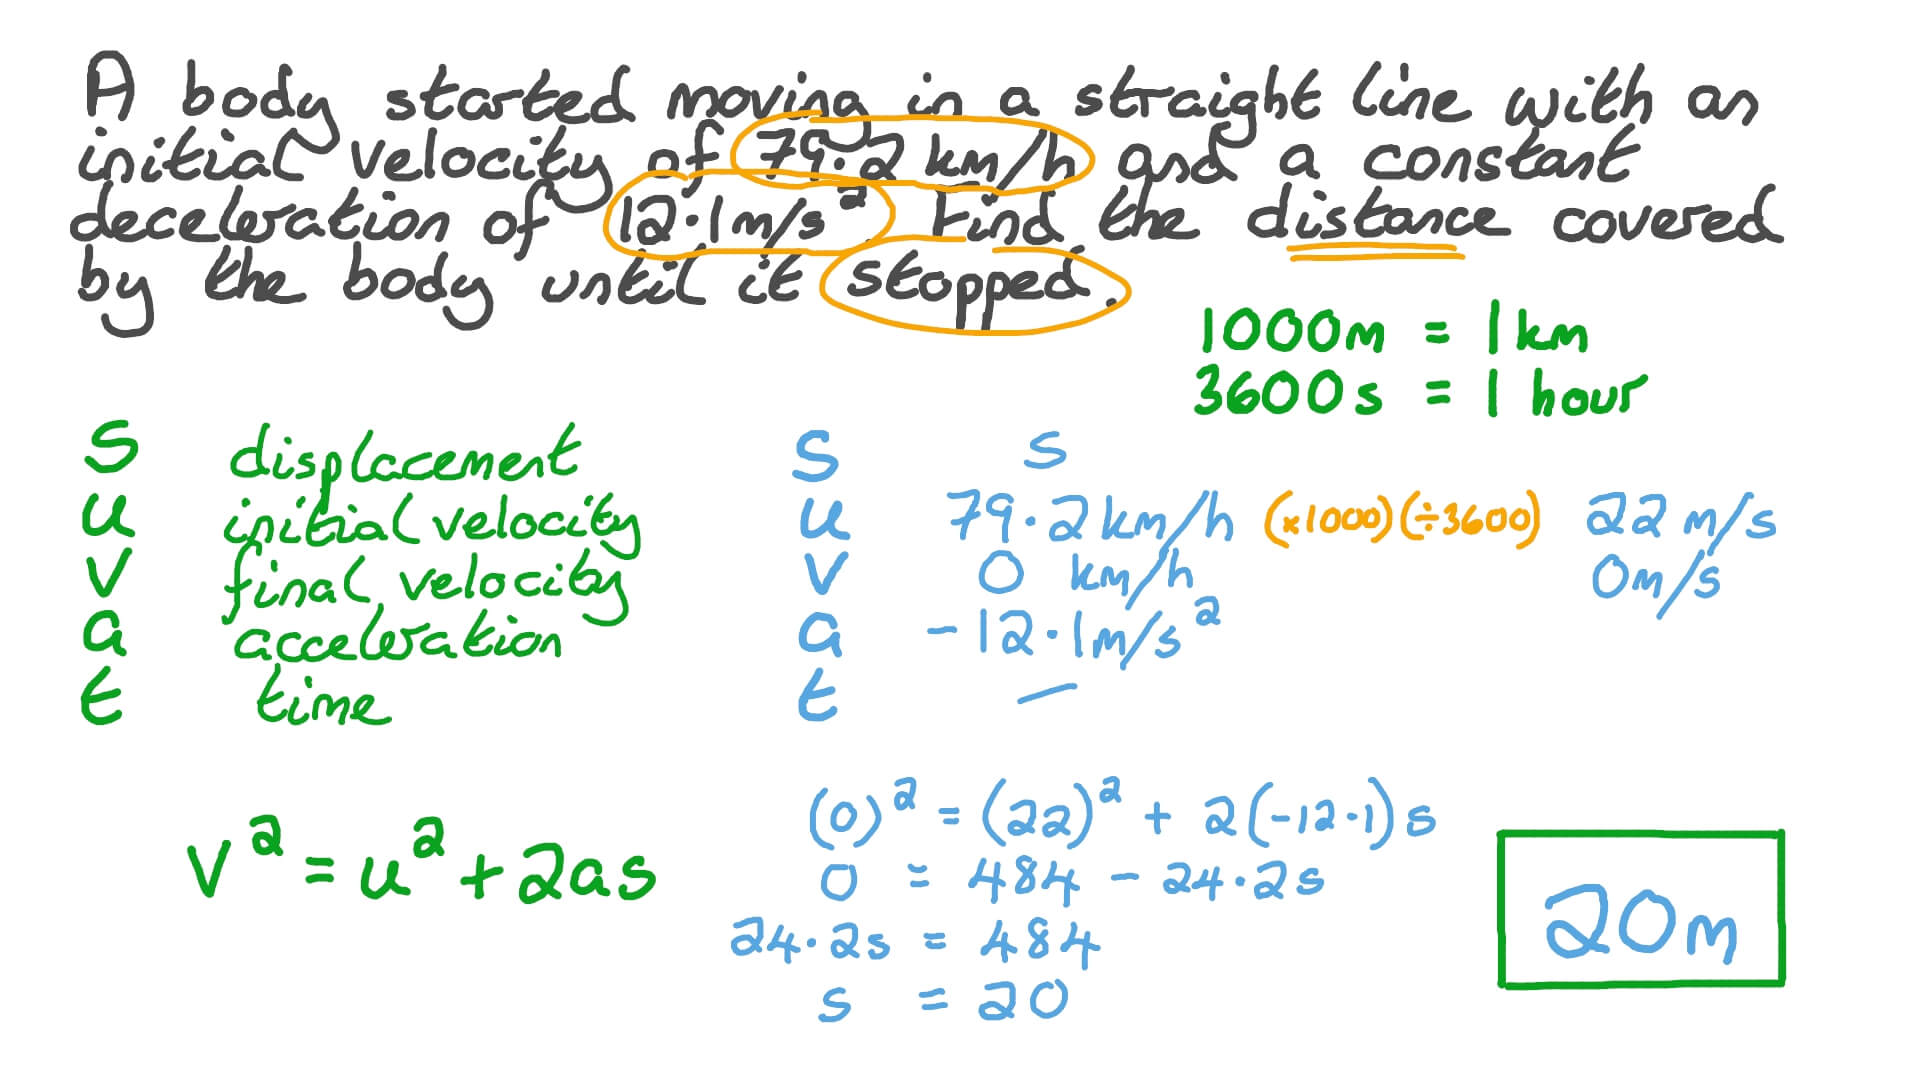 A body started moving in a straight line with an
initial velocity of 79.2 km/h and a constant
deceleration of 12.1m/s². Find the distance covered
by the body until it stopped.
1000m = 1 km
3600s = 1 hour
s displacement
u initial velocity
v final velocity
a acceleration
t time
s s
u 79.2 km/h (×1000)(÷3600) 22 m/s
v 0 km/h 0m/s
a -12.1m/s²
t —
v² = u² + 2as
(0)² = (22)² + 2(-12.1)s
0 = 484 - 24.2s
24.2s = 484
s = 20
20m